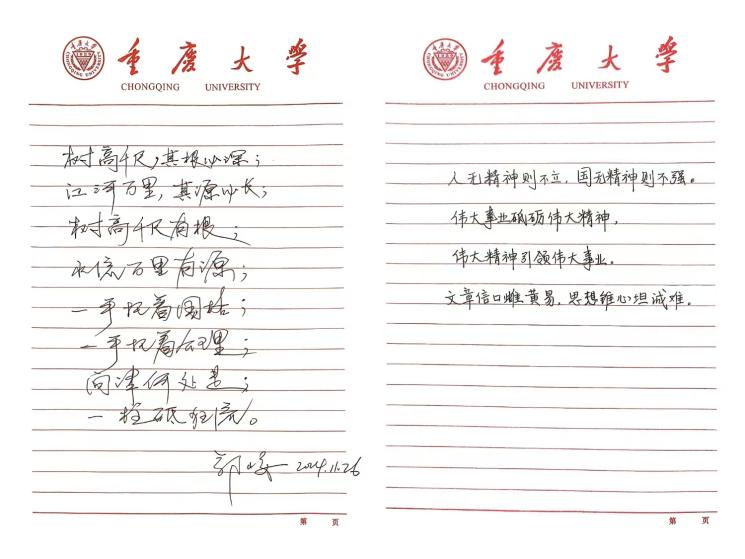 重庆大学
CHONGQING UNIVERSITY
树高千尺，其根必深；
江河万里，其源必长；
树高千尺有根；
水流万里有源；
一手
一手
问津何处是；
一柱砥狂流。
2024.11.26
第 页
重庆大学
CHONGQING UNIVERSITY
人无精神则不立，国无精神则不强。
伟大事业砥砺伟大精神，
伟大精神引领伟大事业。
文章信口雌黄易，思想锥心坦诚难。
第 页